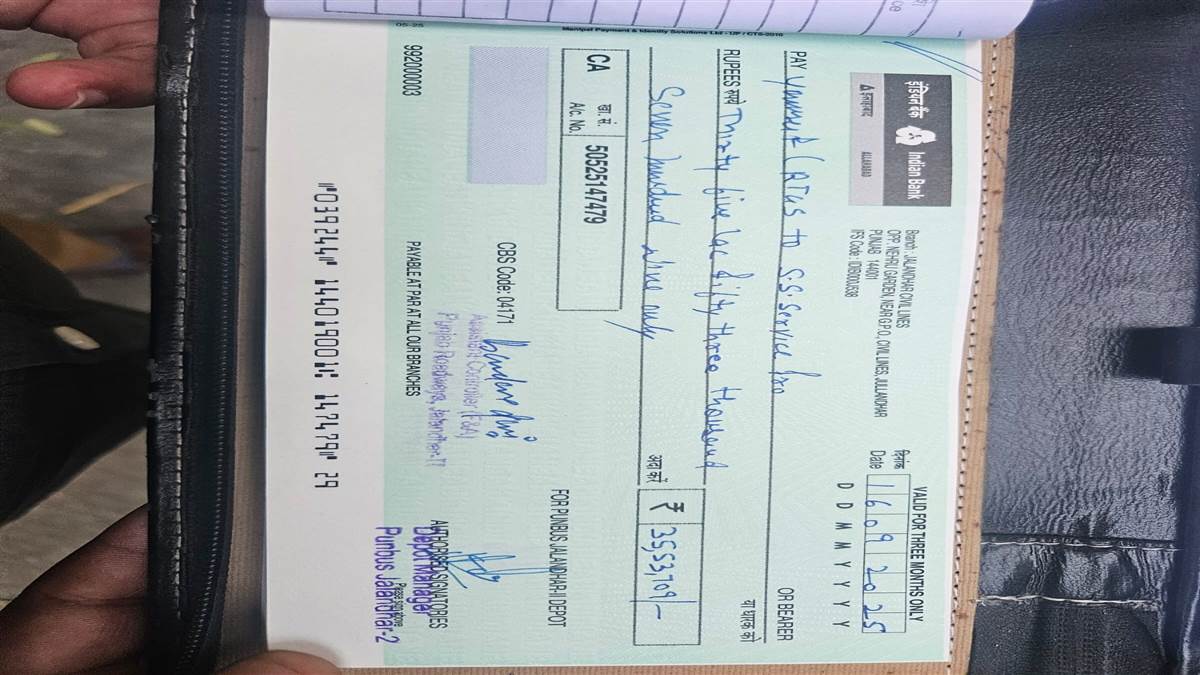 Manipal Payment & Identity Solutions Ltd - IJP / CTS-2010
05-25
इंडियन बैंक Indian Bank
इलाहाबाद ALLAHABAD
Branch : JALANDHAR CIVIL LINES
OPP. NEHRU GARDEN, NEAR G.P.O, CIVIL LINES, JULLANDHAR
PUNJAB 144001
IFS Code : IDIB000J538
VALID FOR THREE MONTHS ONLY
दिनांक
Date 16092025
D D M M Y Y Y Y
PAY Yourself (RTGS to S.S. Service Pro OR BEARER
या धारक को
RUPEES रुपये Thirty five lac fifty three thousand
Seven hundred nine only अदा करें ₹ 35,53,709/-
CA खा. सं.
A/c. No. 50525147479
FOR PUNBUS JALANDHAR-II DEPOT
CBS Code: 04171
Assistant Controller (F&A)
Punjab Roadways, Jalandhar-II
992000003
PAYABLE AT PAR AT ALL OUR BRANCHES
AUTHORISED SIGNATORIES
Depot Manager
Please sign above
Punbus Jalandhar-2
⑈039244⑈ 144019001⑆ 147479⑈ 29